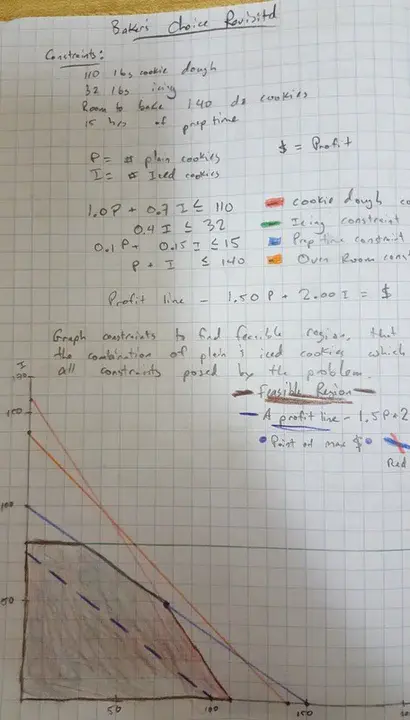 Baker's Choice Revisited
Constraints:
110 lbs cookie dough
32 lbs icing
Room to bake 140 dz cookies
15 hrs of prep time
P = # plain cookies
I = # Iced cookies
$ = Profit
1.0P + 0.7 I ≤ 110
0.4 I ≤ 32
0.1P + 0.15 I ≤ 15
P + I ≤ 140
cookie dough co
Icing constraint
Prep time constraint
Oven Room cons
Profit line - 1.50P + 2.00I = $
Graph constraints to find feasible region, that
the combination of plain & iced cookies which
all constraints posed by the problem.
Feasible Region
A profit line - 1.5P + 2
Point of max $
Red
I
100
50
50
100
150
P